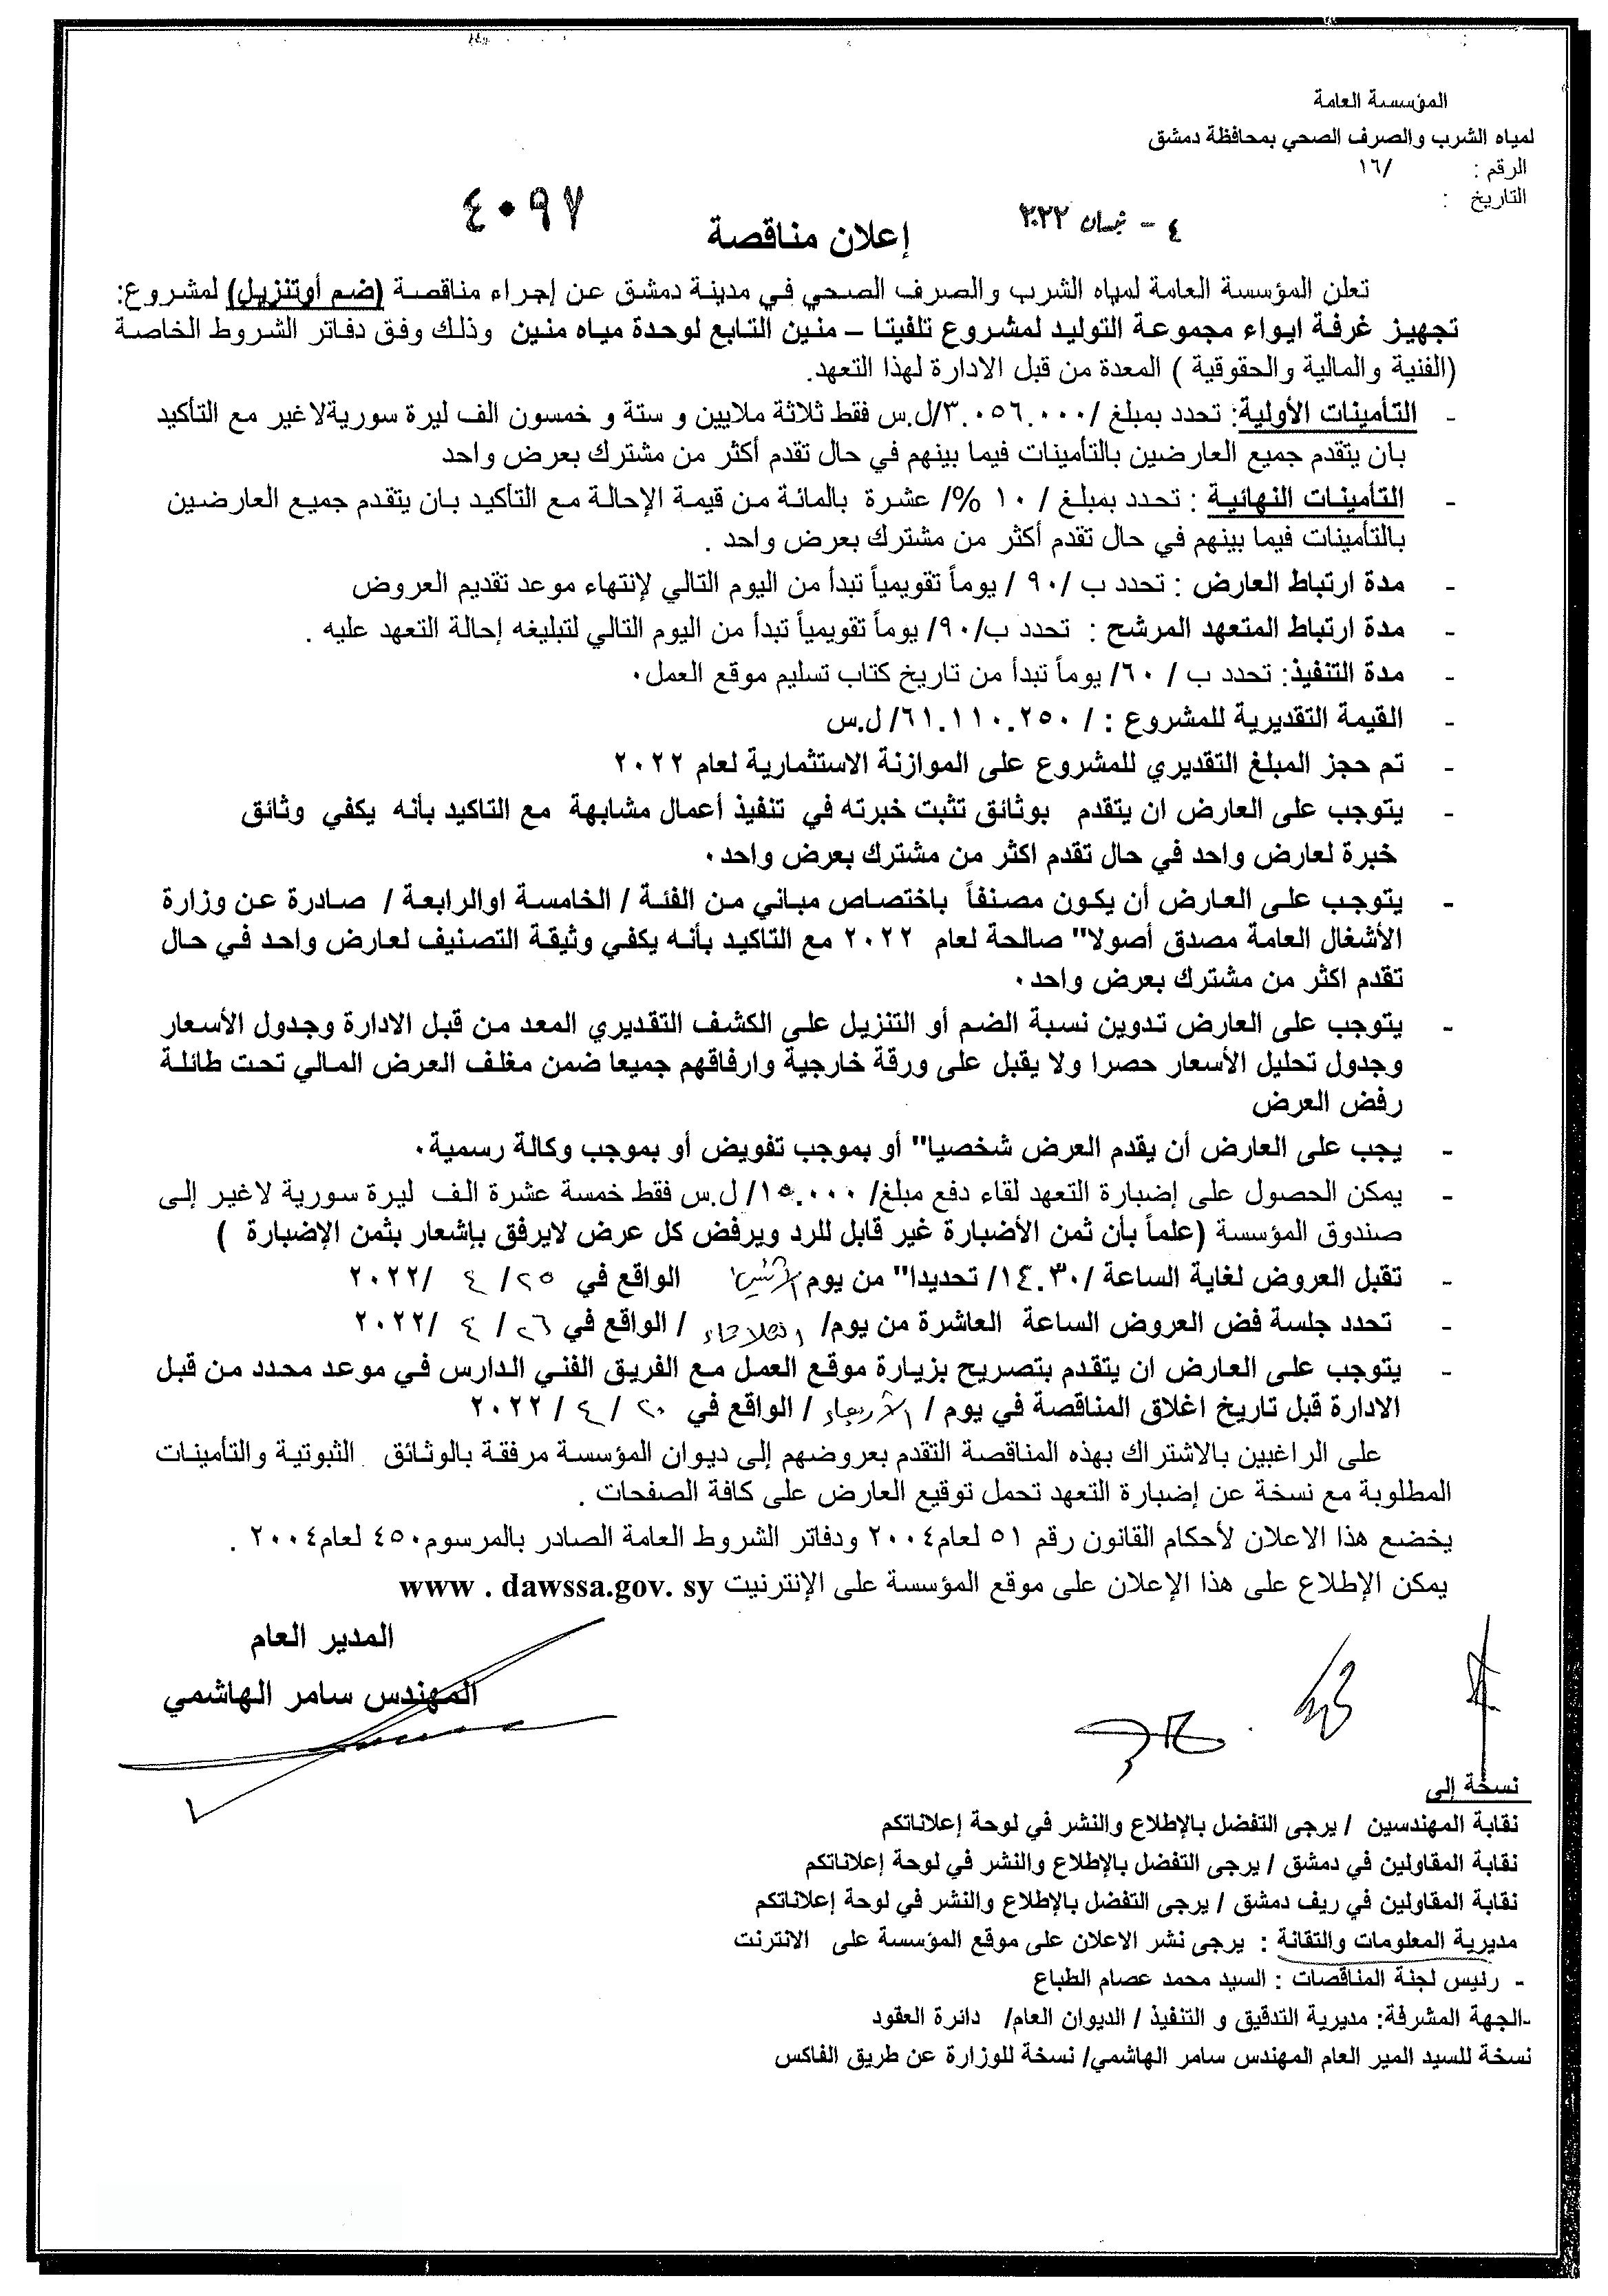 المؤسسة العامة
لمياه الشرب والصرف الصحي بمحافظة دمشق
الرقم : /١٦
التاريخ :
٤ - نيسان ٢٠٢٢
٤٠٩٧
إعلان مناقصة
تعلن المؤسسة العامة لمياه الشرب والصرف الصحي في مدينة دمشق عن إجراء مناقصة (ضم أوتنزيل) لمشروع:
تجهيز غرفة ايواء مجموعة التوليد لمشروع تلفيتا – منين التابع لوحدة مياه منين وذلك وفق دفاتر الشروط الخاصة
(الفنية والمالية والحقوقية ) المعدة من قبل الادارة لهذا التعهد.
- التأمينات الأولية: تحدد بمبلغ /٣.٠٥٦.٠٠٠/ل.س فقط ثلاثة ملايين و ستة و خمسون الف ليرة سوريةلاغير مع التأكيد
بان يتقدم جميع العارضين بالتأمينات فيما بينهم في حال تقدم أكثر من مشترك بعرض واحد
- التأمينات النهائية : تحدد بمبلغ / ١٠ %/ عشرة بالمائة من قيمة الإحالة مع التأكيد بان يتقدم جميع العارضين
بالتأمينات فيما بينهم في حال تقدم أكثر من مشترك بعرض واحد .
- مدة ارتباط العارض : تحدد ب /٩٠ / يوماً تقويمياً تبدأ من اليوم التالي لإنتهاء موعد تقديم العروض
- مدة ارتباط المتعهد المرشح : تحدد ب/٩٠/ يوماً تقويمياً تبدأ من اليوم التالي لتبليغه إحالة التعهد عليه .
- مدة التنفيذ: تحدد ب / ٦٠/ يوماً تبدأ من تاريخ كتاب تسليم موقع العمل٠
- القيمة التقديرية للمشروع : / ٦١.١١٠.٢٥٠/ ل.س
- تم حجز المبلغ التقديري للمشروع على الموازنة الاستثمارية لعام ٢٠٢٢
- يتوجب على العارض ان يتقدم بوثائق تثبت خبرته في تنفيذ أعمال مشابهة مع التاكيد بأنه يكفي وثائق
خبرة لعارض واحد في حال تقدم اكثر من مشترك بعرض واحد٠
- يتوجب على العارض أن يكون مصنفاً باختصاص مباني من الفئة / الخامسة اوالرابعة / صادرة عن وزارة
الأشغال العامة مصدق أصولا" صالحة لعام ٢٠٢٢ مع التاكيد بأنه يكفي وثيقة التصنيف لعارض واحد في حال
تقدم اكثر من مشترك بعرض واحد٠
- يتوجب على العارض تدوين نسبة الضم أو التنزيل على الكشف التقديري المعد من قبل الادارة وجدول الأسعار
وجدول تحليل الأسعار حصرا ولا يقبل على ورقة خارجية وارفاقهم جميعا ضمن مغلف العرض المالي تحت طائلة
رفض العرض
- يجب على العارض أن يقدم العرض شخصيا" أو بموجب تفويض أو بموجب وكالة رسمية٠
- يمكن الحصول على إضبارة التعهد لقاء دفع مبلغ/ ١٥.٠٠٠/ ل.س فقط خمسة عشرة الف ليرة سورية لاغير إلى
صندوق المؤسسة (علماً بأن ثمن الأضبارة غير قابل للرد ويرفض كل عرض لايرفق بإشعار بثمن الإضبارة )
- تقبل العروض لغاية الساعة /١٤.٣٠/ تحديدا" من يوم الاثنين الواقع في ٢٥/ ٤ /٢٠٢٢
- تحدد جلسة فض العروض الساعة العاشرة من يوم/ الثلاثاء / الواقع في ٢٦/ ٤ /٢٠٢٢
- يتوجب على العارض ان يتقدم بتصريح بزيارة موقع العمل مع الفريق الفني الدارس في موعد محدد من قبل
الادارة قبل تاريخ اغلاق المناقصة في يوم / الأربعاء / الواقع في ٢٠ / ٤ / ٢٠٢٢
على الراغبين بالاشتراك بهذه المناقصة التقدم بعروضهم إلى ديوان المؤسسة مرفقة بالوثائق الثبوتية والتأمينات
المطلوبة مع نسخة عن إضبارة التعهد تحمل توقيع العارض على كافة الصفحات .
يخضع هذا الاعلان لأحكام القانون رقم ٥١ لعام٢٠٠٤ ودفاتر الشروط العامة الصادر بالمرسوم٤٥٠ لعام٢٠٠٤ .
يمكن الإطلاع على هذا الإعلان على موقع المؤسسة على الإنترنيت www . dawssa.gov. sy
المدير العام
المهندس سامر الهاشمي
نسخة إلى
نقابة المهندسين / يرجى التفضل بالإطلاع والنشر في لوحة إعلاناتكم
نقابة المقاولين في دمشق / يرجى التفضل بالإطلاع والنشر في لوحة إعلاناتكم
نقابة المقاولين في ريف دمشق / يرجى التفضل بالإطلاع والنشر في لوحة إعلاناتكم
مديرية المعلومات والتقانة : يرجى نشر الاعلان على موقع المؤسسة على الانترنت
- رئيس لجنة المناقصات : السيد محمد عصام الطباع
-الجهة المشرفة: مديرية التدقيق و التنفيذ / الديوان العام/ دائرة العقود
نسخة للسيد المير العام المهندس سامر الهاشمي/ نسخة للوزارة عن طريق الفاكس